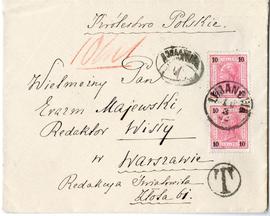 Królestwo Polskie
Wielmożny Pan
Erazm Majewski,
Redaktor Wisły
w
Warszawie
Redakcya Światowita
Złota 61.
10 10
10 10
10 10
T